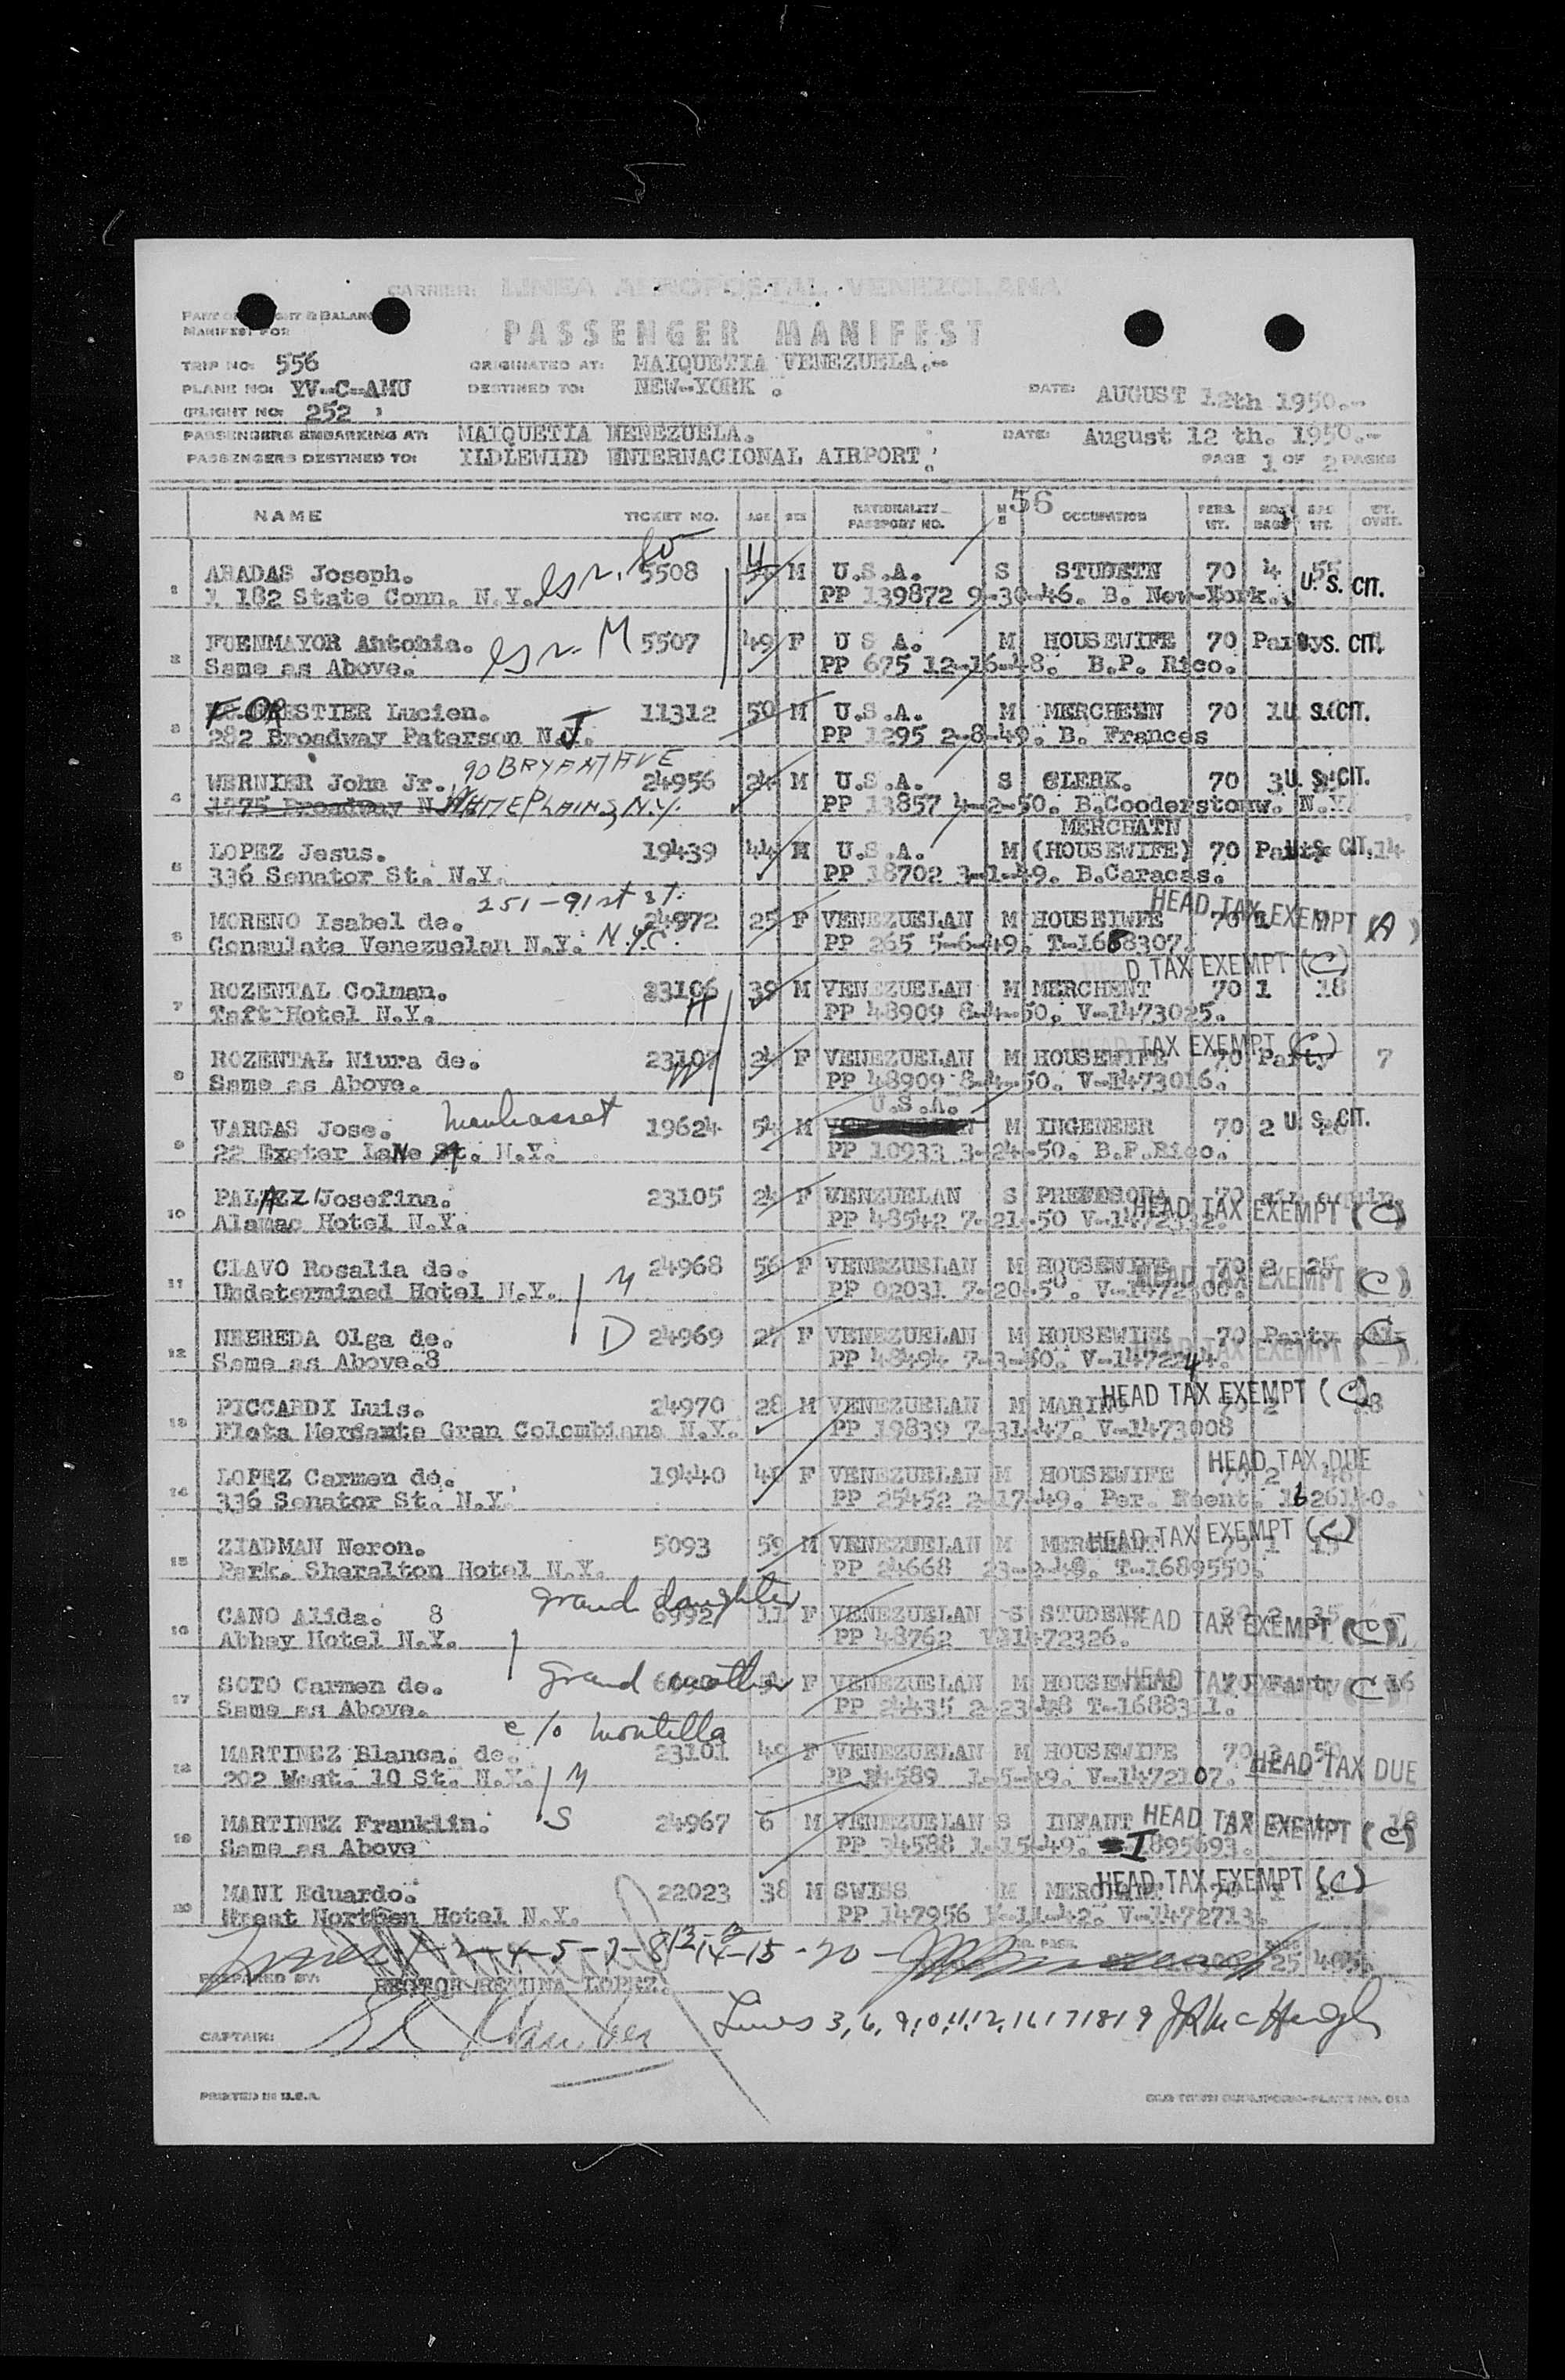 CARRIER: LINEA AEROPOSTAL VENEZOLANA
PASSENGER MANIFEST
MANIFEST FOR
TRIP NO: 556 ORIGINATED AT: MAIQUETIA VENEZUELA.-
PLANE NO: YV-C-AMU DESTINED TO: NEW-YORK . DATE: AUGUST 12th 1950.-
(FLIGHT NO: 252 )
PASSENGERS EMBARKING AT: MAIQUETIA WENEZUELA. DATE: August 12 th. 1950.-
PASSENGERS DESTINED TO: ILDLEWIID UNTERNACIONAL AIRPORT. PAGE 1 OF 2 PAGES
56
NAME TICKET NO. AGE SEX NATIONALITY PASSPORT NO. OCCUPATION PERS. WT. NO. BAGS BAG WT. WT. OVWT.
1 ABADAS Joseph. 5508 M U.S.A. S STUDETN 70 4 55
182 State Conn. N.Y. PP 139872 9-30-46. B. New-York. U. S. CIT.
2 FUENMAYOR Antonia. M 5507 49 F U S A. M HOUSEWIFE 70 Party U. S. CIT.
Same as Above. PP 675 12-16-48. B.P. Rico.
3 FORESTIER Lucien. 11312 50 M U.S.A. M MERCHEEN 70 1 U. S. CIT.
282 Broadway Paterson N.J. PP 1295 2-8-49. B. Frances
90 BRYANT AVE
4 WERNIER John Jr. 24956 24 M U.S.A. S CLERK. 70 3 U. S. CIT.
1975 Broadway N.Y. WHITE PLAINS, N.Y. PP 13857 4-2-50. B.Cooderstonw. N.Y.
MERCHATN
5 LOPEZ Jesus. 19439 44 M U.S.A. M (HOUSEWIFE) 70 Party U. S. CIT. 14
336 Senator St. N.Y. PP 18702 3-1-49. B.Caracas.
251-91st St. HEAD TAX EXEMPT (A)
6 MORENO Isabel de. 24972 25 F VENEZUELAN M HOUSEIWFE 70 1
Consulate Venezuelan N.Y. N.Y.C. PP 265 5-6-49. T-1688307.
HEAD TAX EXEMPT (C)
7 ROZENTAL Colman. 23106 39 M VENEZUELAN M MERCHENT 70 1 18
Taft Hotel N.Y. H PP 48909 8-4-50. V-1473025.
HEAD TAX EXEMPT (C)
8 ROZENTAL Niura de. 23107 24 F VENEZUELAN M HOUSEWIFE 70 Party 7
Same as Above. W PP 48909 8-4-50. V-1473016.
U.S.A.
9 VARGAS Jose. Manhasset 19624 54 M M INGENEER 70 2 U. S. CIT.
22 Exeter LaNe St. N.Y. PP 10933 3-24-50. B.P.Rico.
10 PALAZZI Josefina. 23105 24 F WENEZUELAN S PROFESORA 70
Alamac Hotel N.Y. PP 48542 7-21-50 HEAD TAX EXEMPT (C)
11 CLAVO Rosalia de. 24968 56 F VENEZUELAN M HOUSEWIFE 70 2 25
Undetermined Hotel N.Y. M PP 02031 7-20-50. HEAD TAX EXEMPT (C)
12 NEBREDA Olga de. D 24969 27 F VENEZUELAN M HOUSEWIFE 70 Party
Same as Above.8 PP 48494 7-3-50. V-1472244. HEAD TAX EXEMPT (C)
13 PICCARDI Luis. 24970 28 M VENEZUELAN M HEAD TAX EXEMPT (C)
Flota Mersante Gran Colombiana N.Y. PP 19839 7-31-47. V-1473008
14 LOPEZ Carmen de. 19440 41 F VENEZUELAN M HOUSEWIFE HEAD TAX DUE
336 Senator St. N.Y. PP 25452 2-17-49.
15 ZIADMAN Neron. 5093 59 M VENEZUELAN M HEAD TAX EXEMPT (C)
Park. Sheralton Hotel N.Y. PP 24668 23-2-48. T-1689550.
grand daughter
16 CANO Alida. 8 6992 11 F VENEZUELAN S STUDENT HEAD TAX EXEMPT (C)
Abbay Hotel N.Y. PP 48762 V-1472326.
17 SOTO Carmen de. grand mother F VENEZUELAN M HOUSEWIFE HEAD TAX EXEMPT (C)
Same as Above. PP 24435 2-23-48 T-1688311.
c/o Montilla
18 MARTINEZ Blanca. de. 23101 49 F VENEZUELAN M HOUSEWIFE 70 2 50
202 West. 10 St. N.Y. M V-1472107. HEAD TAX DUE
19 MARTINEZ Franklin. S 24967 6 M VENEZUELAN S INFANT HEAD TAX EXEMPT (C)
Same as Above PP 34588 1-15-49. I895693.
20 MANI Eduardo. 22023 38 M SWISS M MERCHANT HEAD TAX EXEMPT (C)
Great Northen Hotel N.Y. PP 147956 V-1472713.
Lines 1-2-4-5-7-8-13-14-15-20
PREPARED BY: HECTOR REYUNA LOPEZ.
Lines 3, 6, 9, 10, 11, 12, 16 17 18 19 JR McHugh
CAPTAIN:
PRINTED IN U.S.A.